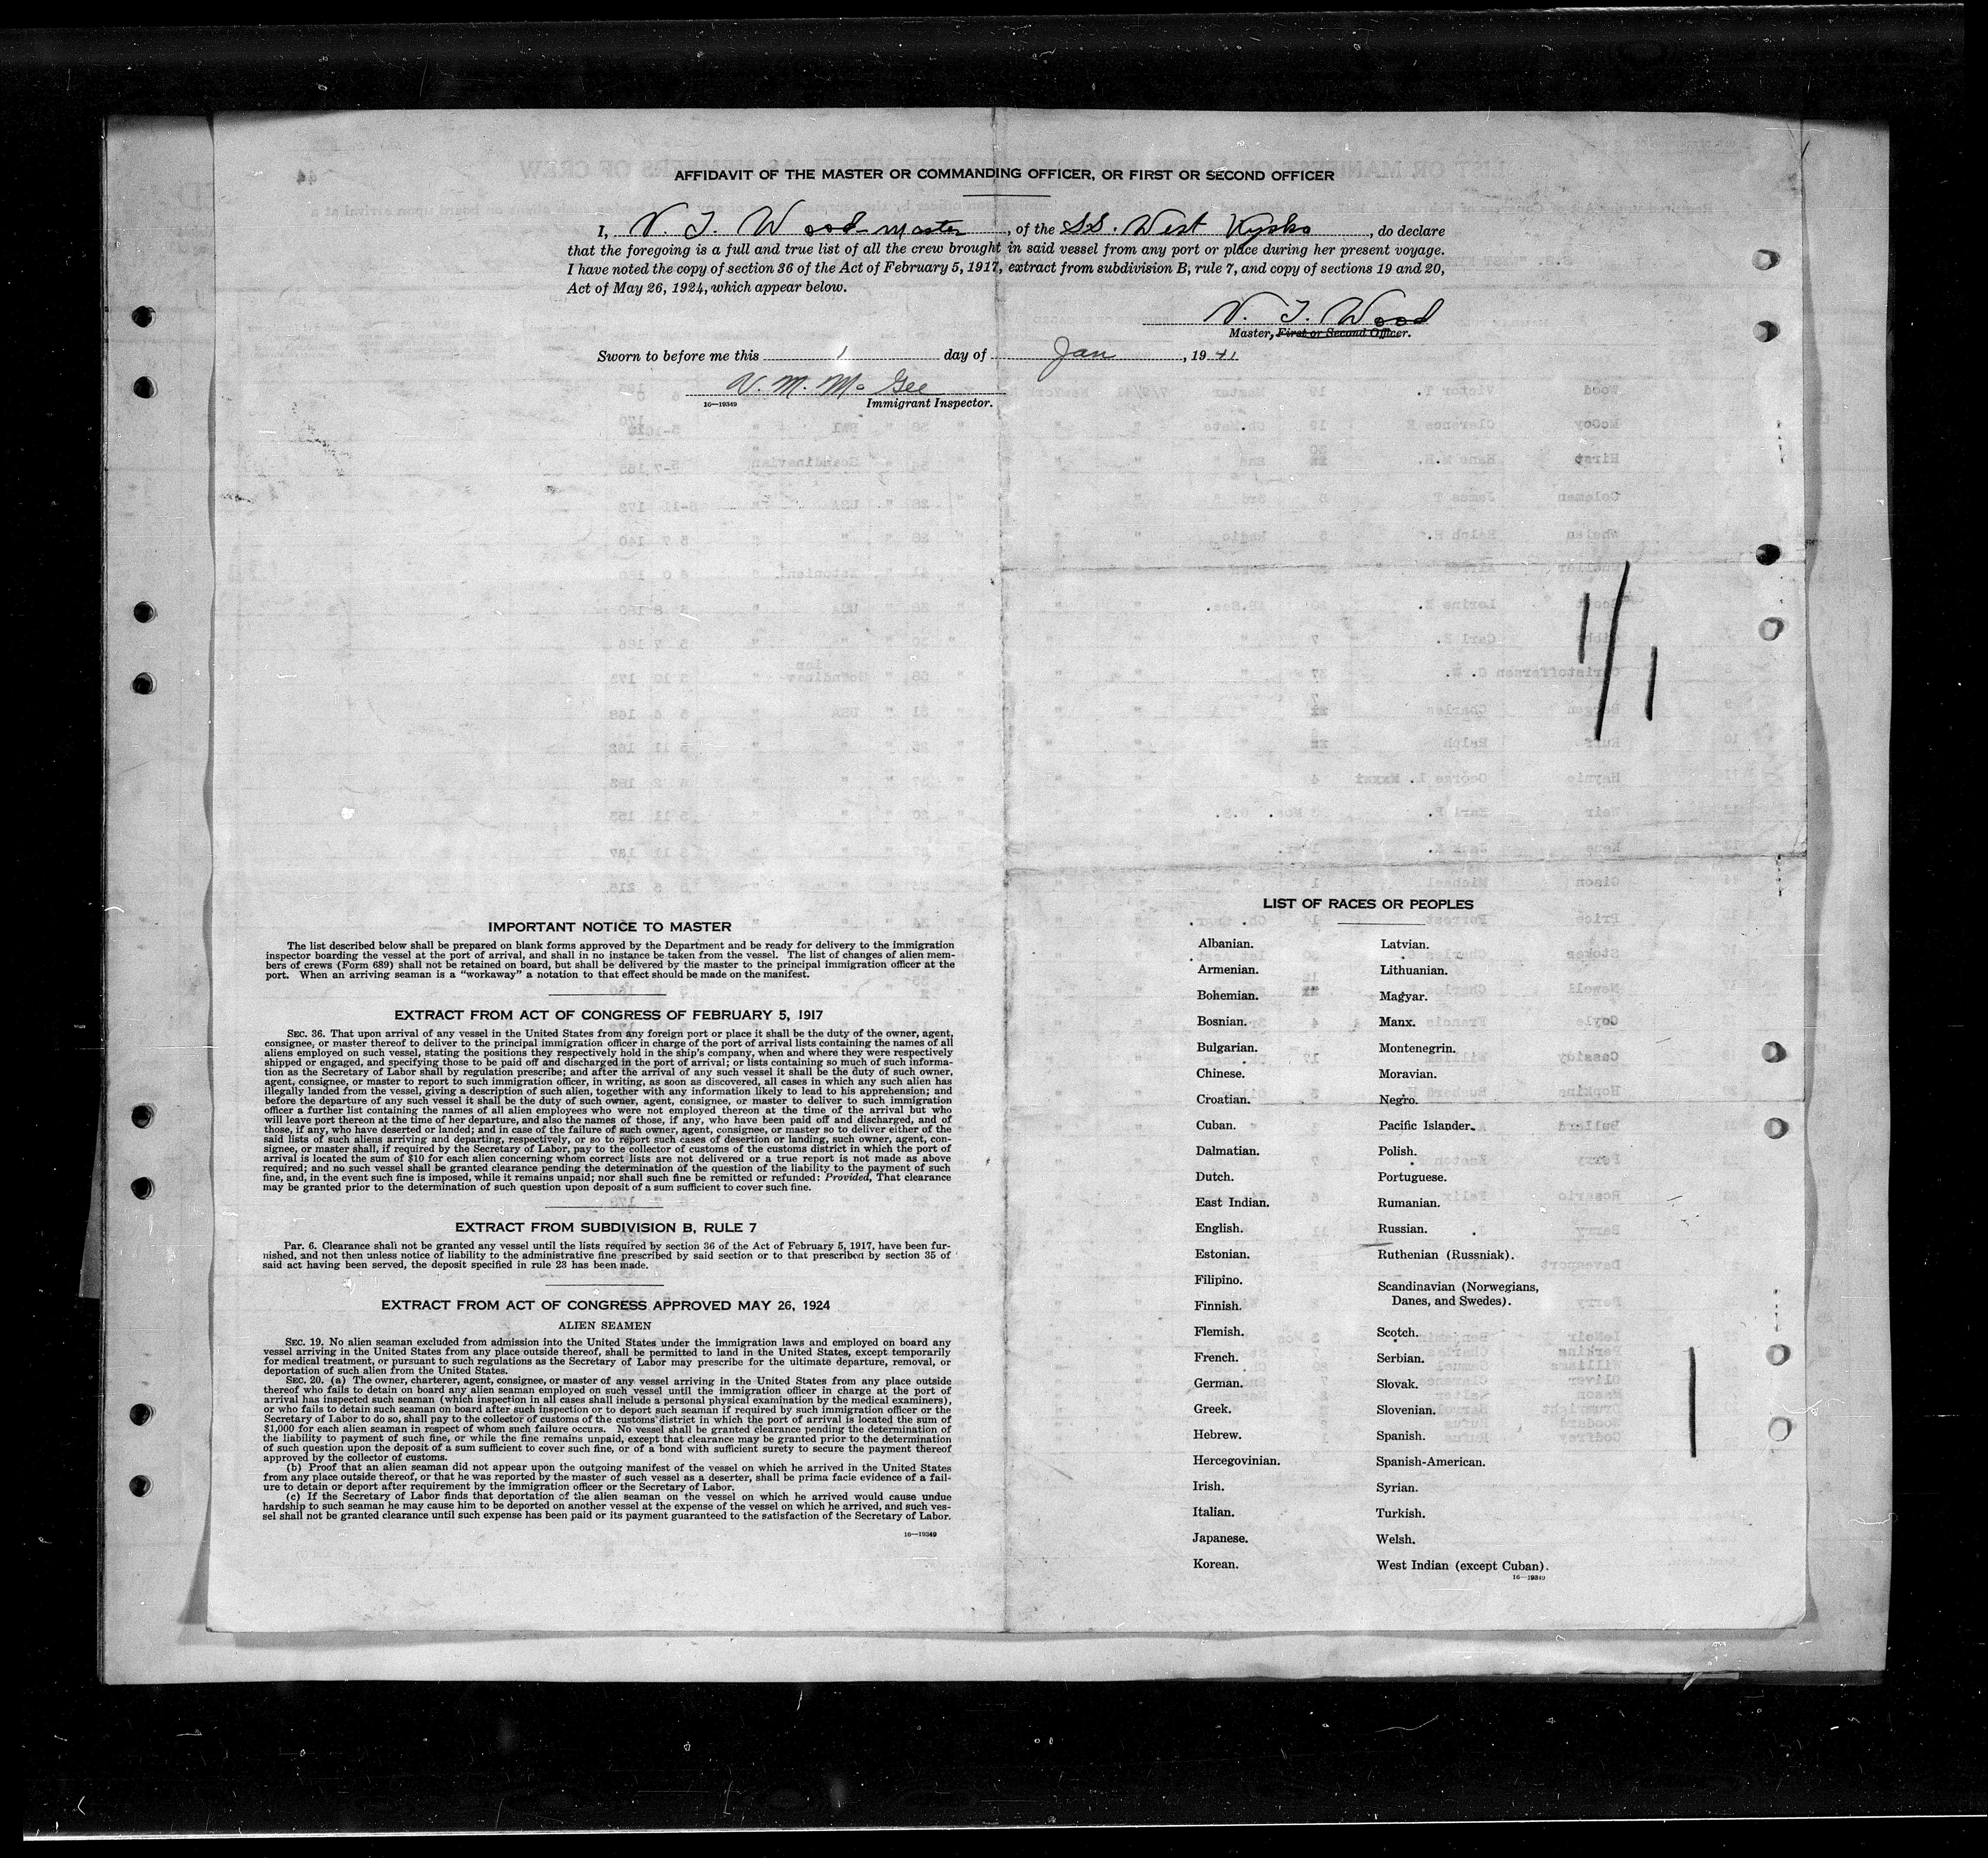 AFFIDAVIT OF THE MASTER OR COMMANDING OFFICER, OR FIRST OR SECOND OFFICER
I, V. T. Wood - master, of the SS. West Kyska, do declare
that the foregoing is a full and true list of all the crew brought in said vessel from any port or place during her present voyage.
I have noted the copy of section 36 of the Act of February 5, 1917, extract from subdivision B, rule 7, and copy of sections 19 and 20,
Act of May 26, 1924, which appear below.
V. T. Wood
Master, First or Second Officer.
Sworn to before me this 1 day of Jan, 1941
V. M. McGee
16—19349 Immigrant Inspector.
1/1
IMPORTANT NOTICE TO MASTER
The list described below shall be prepared on blank forms approved by the Department and be ready for delivery to the immigration
inspector boarding the vessel at the port of arrival, and shall in no instance be taken from the vessel. The list of changes of alien mem-
bers of crews (Form 689) shall not be retained on board, but shall be delivered by the master to the principal immigration officer at the
port. When an arriving seaman is a "workaway" a notation to that effect should be made on the manifest.
EXTRACT FROM ACT OF CONGRESS OF FEBRUARY 5, 1917
SEC. 36. That upon arrival of any vessel in the United States from any foreign port or place it shall be the duty of the owner, agent,
consignee, or master thereof to deliver to the principal immigration officer in charge of the port of arrival lists containing the names of all
aliens employed on such vessel, stating the positions they respectively hold in the ship's company, when and where they were respectively
shipped or engaged, and specifying those to be paid off and discharged in the port of arrival; or lists containing so much of such informa-
tion as the Secretary of Labor shall by regulation prescribe; and after the arrival of any such vessel it shall be the duty of such owner,
agent, consignee, or master to report to such immigration officer, in writing, as soon as discovered, all cases in which any such alien has
illegally landed from the vessel, giving a description of such alien, together with any information likely to lead to his apprehension; and
before the departure of any such vessel it shall be the duty of such owner, agent, consignee, or master to deliver to such immigration
officer a further list containing the names of all alien employees who were not employed thereon at the time of the arrival but who
will leave port thereon at the time of her departure, and also the names of those, if any, who have been paid off and discharged, and of
those, if any, who have deserted or landed; and in case of the failure of such owner, agent, consignee, or master so to deliver either of the
said lists of such aliens arriving and departing, respectively, or so to report such cases of desertion or landing, such owner, agent, con-
signee, or master shall, if required by the Secretary of Labor, pay to the collector of customs of the customs district in which the port of
arrival is located the sum of $10 for each alien concerning whom correct lists are not delivered or a true report is not made as above
required; and no such vessel shall be granted clearance pending the determination of the question of the liability to the payment of such
fine, and, in the event such fine is imposed, while it remains unpaid; nor shall such fine be remitted or refunded: Provided, That clearance
may be granted prior to the determination of such question upon deposit of a sum sufficient to cover such fine.
EXTRACT FROM SUBDIVISION B, RULE 7
Par. 6. Clearance shall not be granted any vessel until the lists required by section 36 of the Act of February 5, 1917, have been fur-
nished, and not then unless notice of liability to the administrative fine prescribed by said section or to that prescribed by section 35 of
said act having been served, the deposit specified in rule 23 has been made.
EXTRACT FROM ACT OF CONGRESS APPROVED MAY 26, 1924
ALIEN SEAMEN
SEC. 19. No alien seaman excluded from admission into the United States under the immigration laws and employed on board any
vessel arriving in the United States from any place outside thereof, shall be permitted to land in the United States, except temporarily
for medical treatment, or pursuant to such regulations as the Secretary of Labor may prescribe for the ultimate departure, removal, or
deportation of such alien from the United States.
SEC. 20. (a) The owner, charterer, agent, consignee, or master of any vessel arriving in the United States from any place outside
thereof who fails to detain on board any alien seaman employed on such vessel until the immigration officer in charge at the port of
arrival has inspected such seaman (which inspection in all cases shall include a personal physical examination by the medical examiners),
or who fails to detain such seaman on board after such inspection or to deport such seaman if required by such immigration officer or the
Secretary of Labor to do so, shall pay to the collector of customs of the customs district in which the port of arrival is located the sum of
$1,000 for each alien seaman in respect of whom such failure occurs. No vessel shall be granted clearance pending the determination of
the liability to payment of such fine, or while the fine remains unpaid, except that clearance may be granted prior to the determination
of such question upon the deposit of a sum sufficient to cover such fine, or of a bond with sufficient surety to secure the payment thereof
approved by the collector of customs.
(b) Proof that an alien seaman did not appear upon the outgoing manifest of the vessel on which he arrived in the United States
from any place outside thereof, or that he was reported by the master of such vessel as a deserter, shall be prima facie evidence of a fail-
ure to detain or deport after requirement by the immigration officer or the Secretary of Labor.
(c) If the Secretary of Labor finds that deportation of the alien seaman on the vessel on which he arrived would cause undue
hardship to such seaman he may cause him to be deported on another vessel at the expense of the vessel on which he arrived, and such ves-
sel shall not be granted clearance until such expense has been paid or its payment guaranteed to the satisfaction of the Secretary of Labor.
16—19349
LIST OF RACES OR PEOPLES
Albanian.
Armenian.
Bohemian.
Bosnian.
Bulgarian.
Chinese.
Croatian.
Cuban.
Dalmatian.
Dutch.
East Indian.
English.
Estonian.
Filipino.
Finnish.
Flemish.
French.
German.
Greek.
Hebrew.
Hercegovinian.
Irish.
Italian.
Japanese.
Korean.
Latvian.
Lithuanian.
Magyar.
Manx.
Montenegrin.
Moravian.
Negro.
Pacific Islander.
Polish.
Portuguese.
Rumanian.
Russian.
Ruthenian (Russniak).
Scandinavian (Norwegians,
Danes, and Swedes).
Scotch.
Serbian.
Slovak.
Slovenian.
Spanish.
Spanish-American.
Syrian.
Turkish.
Welsh.
West Indian (except Cuban).
16—19349